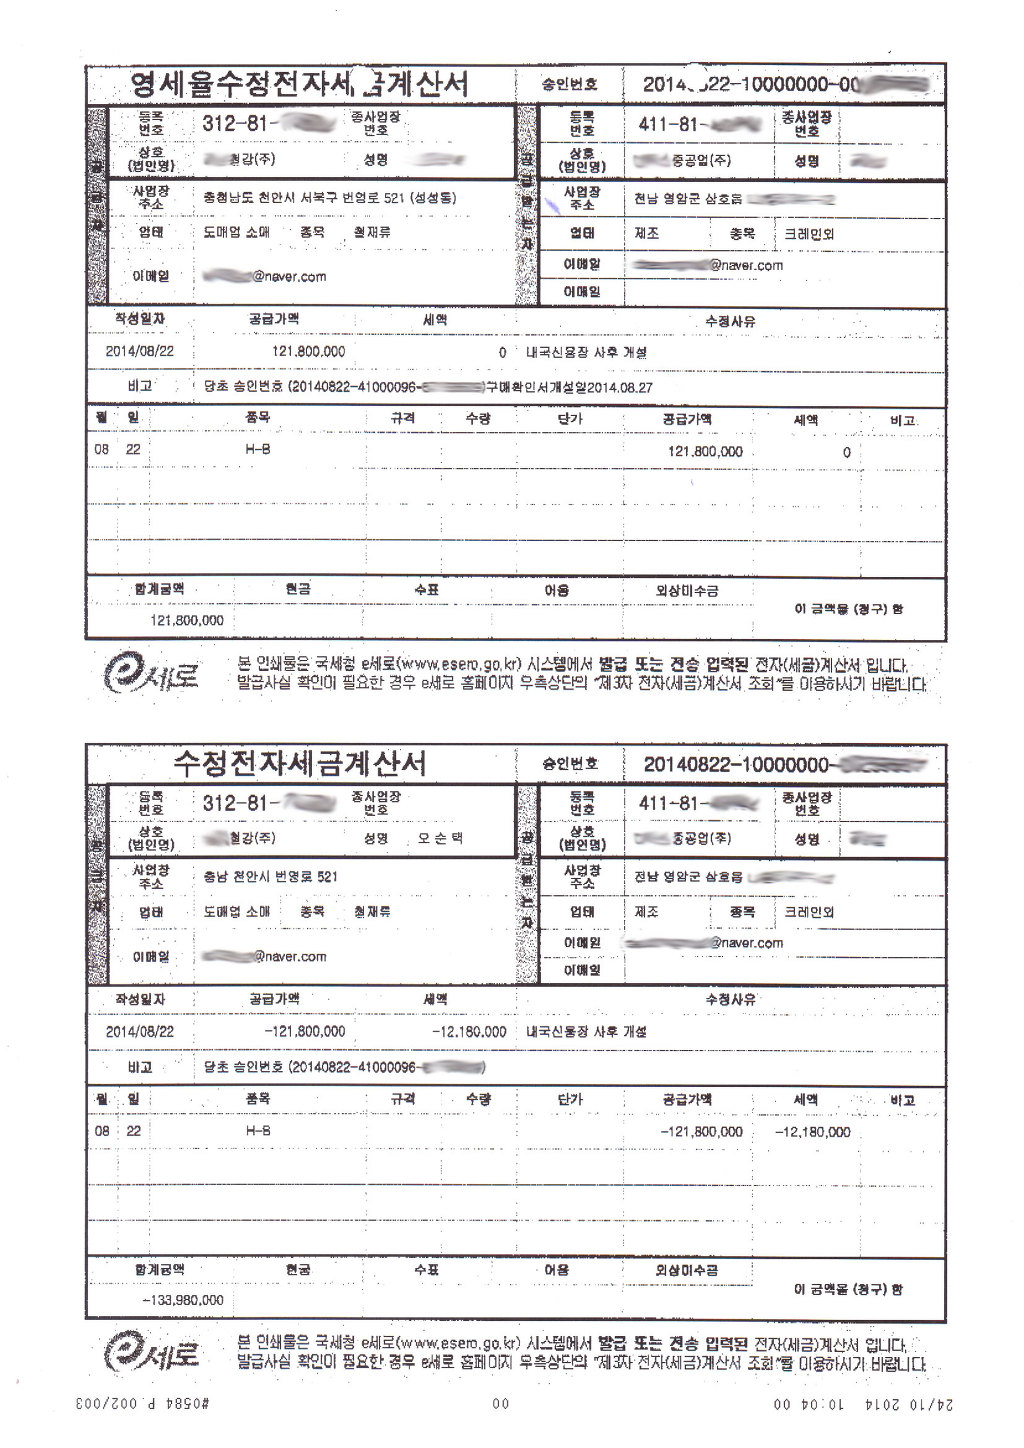 영세율수정전자세금계산서 승인번호 20140822-10000000-00
공급자 등록번호 312-81- 종사업장번호 공급받는자 등록번호 411-81- 종사업장번호
상호(법인명) 철강(주) 성명 상호(법인명) 중공업(주) 성명
사업장주소 충청남도 천안시 서북구 번영로 521 (성성동) 사업장주소 전남 영암군 삼호읍
업태 도매업 소매 종목 철재류 업태 제조 종목 크레인외
이메일 @naver.com 이메일 @naver.com
이메일
작성일자 공급가액 세액 수정사유
2014/08/22 121,800,000 0 내국신용장 사후 개설
비고 당초 승인번호 (20140822-41000096- )구매확인서개설일2014.08.27
월 일 품목 규격 수량 단가 공급가액 세액 비고
08 22 H-B 121,800,000 0
합계금액 현금 수표 어음 외상미수금 이 금액을 (청구) 함
121,800,000
e세로 본 인쇄물은 국세청 e세로(www.esero.go.kr) 시스템에서 발급 또는 전송 입력된 전자(세금)계산서 입니다.
발급사실 확인이 필요한 경우 e세로 홈페이지 우측상단의 "제3자 전자(세금)계산서 조회"를 이용하시기 바랍니다.
수정전자세금계산서 승인번호 20140822-10000000-
공급자 등록번호 312-81- 종사업장번호 공급받는자 등록번호 411-81- 종사업장번호
상호(법인명) 철강(주) 성명 오순택 상호(법인명) 중공업(주) 성명
사업장주소 충남 천안시 번영로 521 사업장주소 전남 영암군 삼호읍
업태 도매업 소매 종목 철재류 업태 제조 종목 크레인외
이메일 @naver.com 이메일 @naver.com
이메일
작성일자 공급가액 세액 수정사유
2014/08/22 -121,800,000 -12,180,000 내국신용장 사후 개설
비고 당초 승인번호 (20140822-41000096- )
월 일 품목 규격 수량 단가 공급가액 세액 비고
08 22 H-B -121,800,000 -12,180,000
합계금액 현금 수표 어음 외상미수금 이 금액을 (청구) 함
-133,980,000
e세로 본 인쇄물은 국세청 e세로(www.esero.go.kr) 시스템에서 발급 또는 전송 입력된 전자(세금)계산서 입니다.
발급사실 확인이 필요한 경우 e세로 홈페이지 우측상단의 "제3자 전자(세금)계산서 조회"를 이용하시기 바랍니다.
24/10 2014 10:04 00 00 #0584 P.002/003